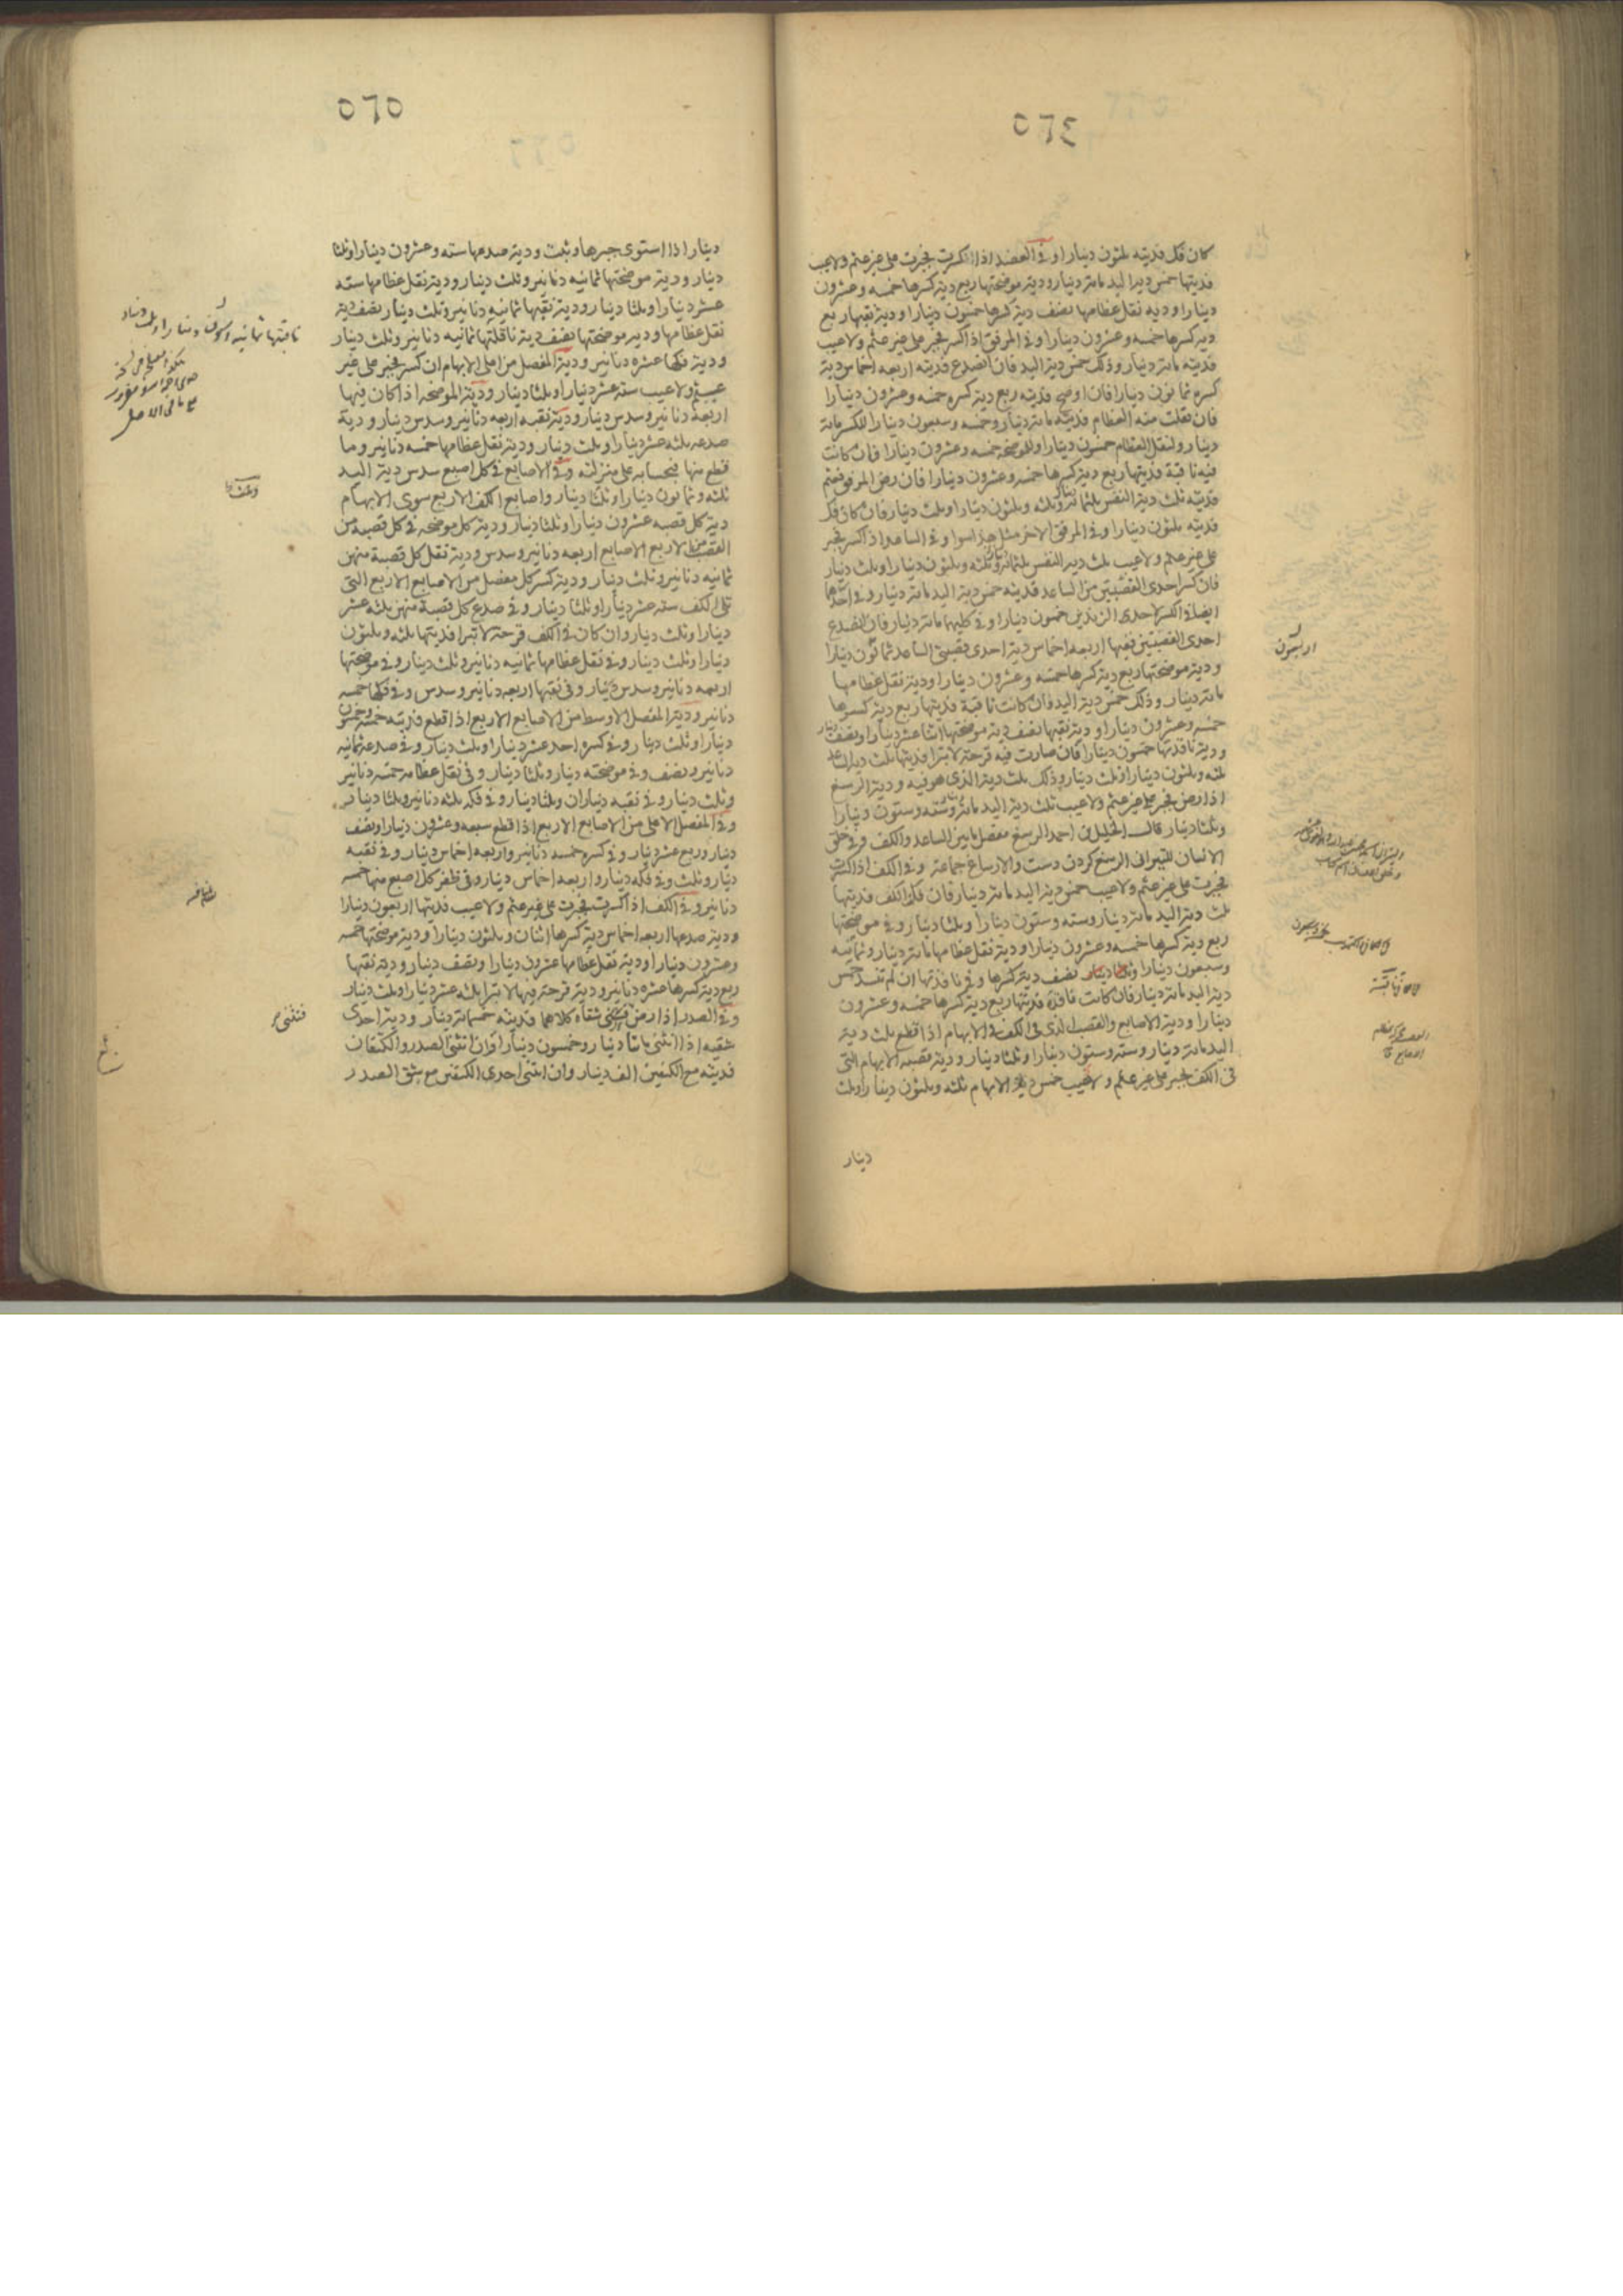 ٥٦٤
كان فك فديته ثلثون دينارا وفي العضد اذا انكسرت فجبرت على غير عثم ولا عيب
فديتها خمس دية اليد مائة دينار ودية موضحتها ربع دية كسرها خمسه وعشرون
دينارا وديه نقل عظامها نصف دية كسرها خمسون دينارا ودية نقبها ربع
دية كسرها خمسه وعشرون دينارا وفي المرفق اذا كسر فجبر على غير عثم ولا عيب
فديته مائة دينار وذلك خمس دية اليد فان انصدع فديته اربعه اخماس دية
كسره ثمانون دينارا فان اوضح فديته ربع دية كسره خمسه وعشرون دينارا
فان نقلت منه العظام فديته مائة دينار وخمسه وسبعون دينارا للكسر مائة
دينار ولنقل العظام خمسون دينارا وللموضحه خمسه وعشرون دينارا فان كانت
فيه ناقبة فديتها ربع دية كسرها خمسه وعشرون دينارا فان رض المرفق فعثم
فديته ثلث دية النفس ثلثمائة دينار وثلثه وثلثون دينارا وثلث دينار فان كان فك
فديته ثلثون دينارا وفي المرفق الاخر مثل هذا سوا وفي الساعد اذا كسر فجبر
على غير عثم ولا عيب ثلث دية النفس ثلثمائة وثلثه وثلثون دينارا وثلث دينار
فان كسر احدى القصبتين من الساعد فديته خمس دية اليد مائة دينار وفي احدهما
ايضا في الكسر لاحدى الزندين خمسون دينارا وفي كليهما مائة دينار فان انصدع
احدى القصبتين ففيها اربعه اخماس دية احدى قصبتي الساعد ثمانون دينارا
ودية موضحتها ربع دية كسرها خمسه وعشرون دينارا ودية نقل عظامها
مائة دينار وذلك خمس دية اليد فان كانت ناقبة فديتها ربع دية كسرها
خمسه وعشرون دينارا ودية نقبها نصف دية موضحتها اثنا عشر دينارا ونصف دينار
ودية نافذتها خمسون دينارا فان صارت فيه قرحة لا تبرا فديتها ثلث دية الساعد
ثلثه وثلثون دينارا وثلث دينار وذلك ثلث دية الذي هو فيه ودية الرسغ
اذا رض فجبر على غير عثم ولا عيب ثلث دية اليد مائة دينار وسته وستون دينارا
وثلثا دينار قال الخليل بن احمد الرسغ مفصل ما بين الساعد والكف وفي خلق
الانسان للتبيراني الرسغ كردن دست والارساغ جماعة وفي الكف اذا كسرت
فجبرت على غير عثم ولا عيب خمس دية اليد مائة دينار فان فك الكف فديتها
ثلث دية اليد مائة دينار وسته وستون دينارا وثلثا دينار وفي موضحتها
ربع دية كسرها خمسه وعشرون دينارا ودية نقل عظامها مائة دينار وثمانيه
وسبعون دينارا وثلثا دينار نصف دية كسرها وفي نافذتها ان لم تنسد خمس
دية اليد مائة دينار فان كانت نافذة فديتها ربع دية كسرها خمسه وعشرون
دينارا ودية الاصابع والقصب الذي في الكف في الابهام اذا قطع ثلث دية
اليد مائة دينار وسته وستون دينارا وثلثا دينار ودية قصبة الابهام التي
في الكف تجبر على غير عثم ولا عيب خمس دية الابهام ثلثه وثلثون دينارا وثلث
دينار
اربعون
ناقبة
٥٦٥
دينار اذا استوى جبرها وثبت ودية صدعها سته وعشرون دينارا وثلثا
دينار ودية موضحتها ثمانيه دنانير وثلث دينار ودية نقل عظامها سته
عشر دينارا وثلثا دينار ودية نقبها ثمانيه دنانير وثلث دينار نصف دية
نقل عظامها ودية موضحتها نصف دية ناقلتها ثمانيه دنانير وثلث دينار
ودية فكها عشره دنانير ودية المفصل من اعلى الابهام ان كسر فجبر على غير
عثم ولا عيب سته عشر دينارا وثلثا دينار ودية الموضحه اذا كان فيها
اربعة دنانير وسدس دينار ودية نقبه اربعه دنانير وسدس دينار ودية
صدعه ثلثه عشر دينارا وثلث دينار ودية نقل عظامها خمسه دنانير وما
قطع منها فبحسابه على منزلته وفي الاصابع في كل اصبع سدس دية اليد
ثلثه وثمانون دينارا وثلث دينار واصابع الكف الاربع سوى الابهام
دية كل قصبه عشرون دينارا وثلثا دينار ودية كل موضحه في كل قصبه من
القصب من الاربع الاصابع اربعه دنانير وسدس ودية نقل كل قصبة منهن
ثمانيه دنانير وثلث دينار ودية كسر كل مفصل من الاصابع الاربع التي
تلي الكف سته عشر دينارا وثلثا دينار وفي صدع كل قصبة منهن ثلثه عشر
دينارا وثلث دينار وان كان في الكف قرحة لا تبرا فديتها ثلثه وثلثون
دينارا وثلث دينار وفي نقل عظامها ثمانيه دنانير وثلث دينار وفي موضحتها
اربعه دنانير وسدس دينار وفي نقبها اربعه دنانير وسدس وفي فكها خمسه
دنانير ودية المفصل الاوسط من الاصابع الاربع اذا قطع فديته خمسه وخمسون
دينارا وثلث دينار وفي كسره احد عشر دينارا وثلث دينار وفي صدعه ثمانيه
دنانير ونصف وفي موضحته دينار وثلثا دينار وفي نقل عظامه خمسه دنانير
وثلث دينار وفي نقبه ديناران وثلثا دينار وفي فكه ثلثه دنانير وثلثا دينار
وفي المفصل الاعلى من الاصابع الاربع اذا قطع سبعه وعشرون دينارا ونصف
دينار وربع عشر دينار وفي كسره خمسه دنانير واربعه اخماس دينار وفي نقبه
دينار وثلث وفي فكه دينار واربعه اخماس دينار وفي ظفر كل اصبع منها خمسه
دنانير وفي الكف اذا كسرت فجبرت على غير عثم ولا عيب فديتها اربعون دينارا
ودية صدعها اربعه اخماس دية كسرها اثنان وثلثون دينارا ودية موضحتها خمسه
وعشرون دينارا ودية نقل عظامها عشرون دينارا ونصف دينار ودية نقبها
ربع دية كسرها عشره دنانير ودية قرحة فيها لا تبرا ثلثه عشر دينارا وثلث دينار
وفي الصدر اذا رض فثنى شقاه كلاهما فديته خمسمائة دينار ودية احدى
شقيه اذا انثنى مائتا دينار وخمسون دينارا وان انثنى الصدر والكتفان
فديته مع الكتفين الف دينار وان انثنى احدى الكتفين مع شق الصدر
فتثنى